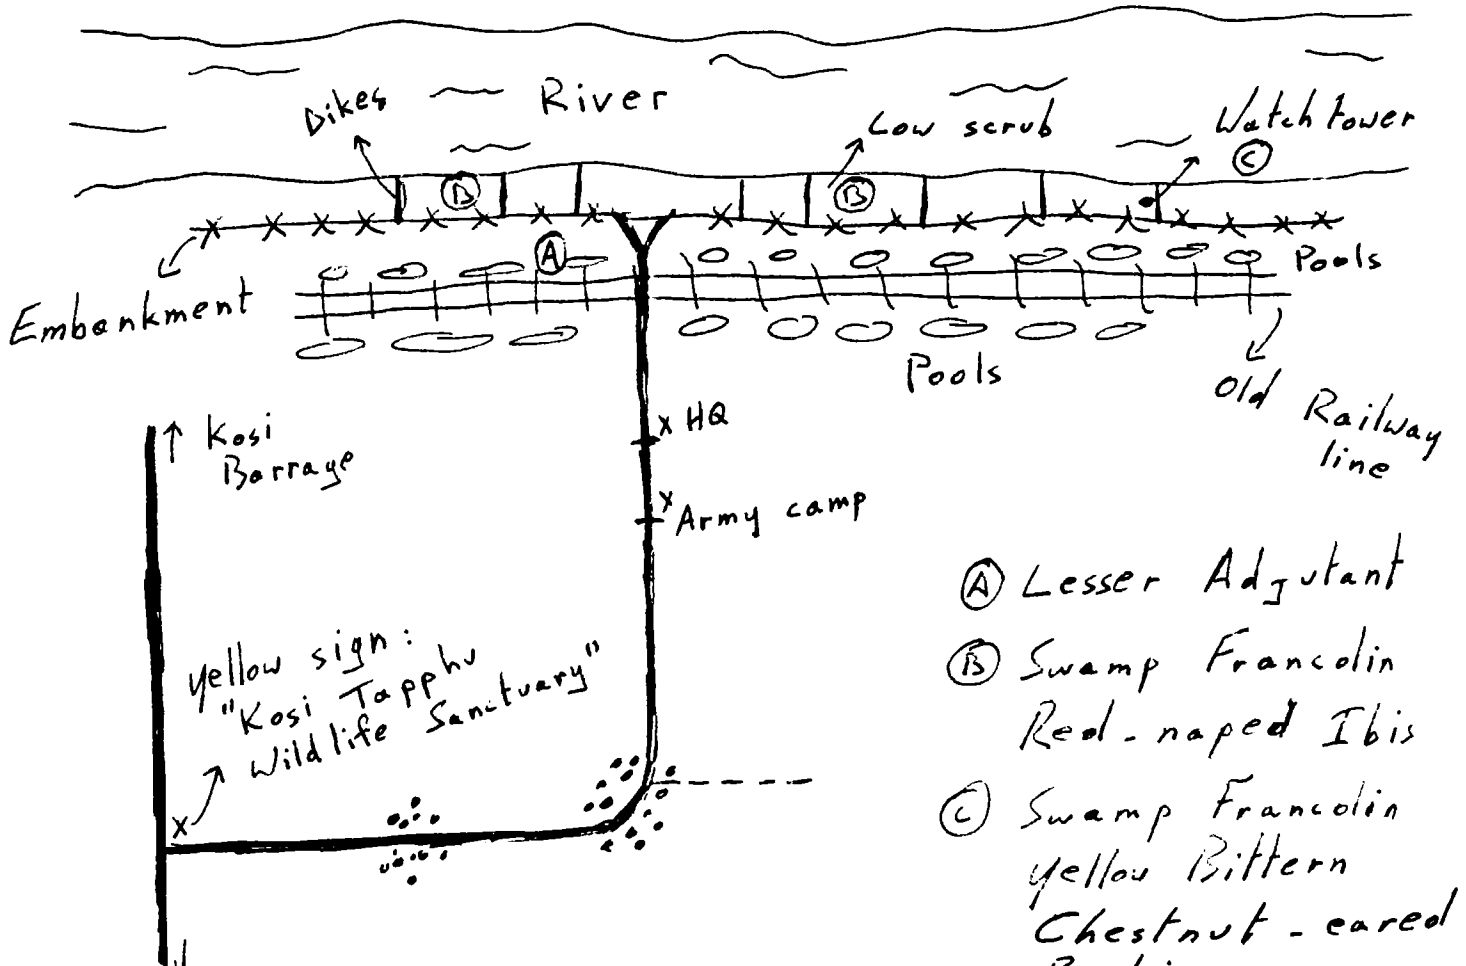 River
Dikes
Low scrub
Watch tower
C
B
B
A
Pools
Embankment
Pools
Old Railway
line
HQ
Kosi
Barrage
Army camp
yellow sign:
"Kosi Tapphu
Wildlife Sanctuary"
A Lesser Adjutant
B Swamp Francolin
Red-naped Ibis
C Swamp Francolin
Yellow Bittern
Chestnut-eared